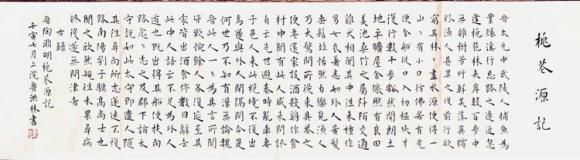 桃花源記
晉太元中武陵人捕魚為
業緣溪行忘路之遠近忽
逢桃花林夾岸數百步中
無雜樹芳草鮮美落英繽
紛漁人甚異之復前行欲
窮其林林盡水源便得一
山山有小口彷彿若有光
便舍船從口入初極狹才
通人復行數十步豁然開朗土
地平曠屋舍儼然有良田
美池桑竹之屬阡陌交通
雞犬相聞其中往來種作
男女衣著悉如外人黃髮
垂髫並怡然自樂見漁人
乃大驚問所從來具答之
便要還家設酒殺雞作食
村中聞有此人咸來問訊
自云先世避秦時亂率妻
子邑人來此絕境不復出
焉遂與外人間隔問今是
何世乃不知有漢無論魏
晉此人一一為具言所聞
皆歎惋餘人各復延至其
家皆出酒食停數日辭去
此中人語云不足為外人
道也既出得其船便扶向
路處處誌之及郡下詣太
守說如此太守即遣人隨
其往尋向所誌遂迷不復
得路南陽劉子驥高尚士也
聞之欣然規往未果尋病
終後遂無問津者
右錄
晉陶淵明桃花源記
壬寅七月上浣魯洪林書